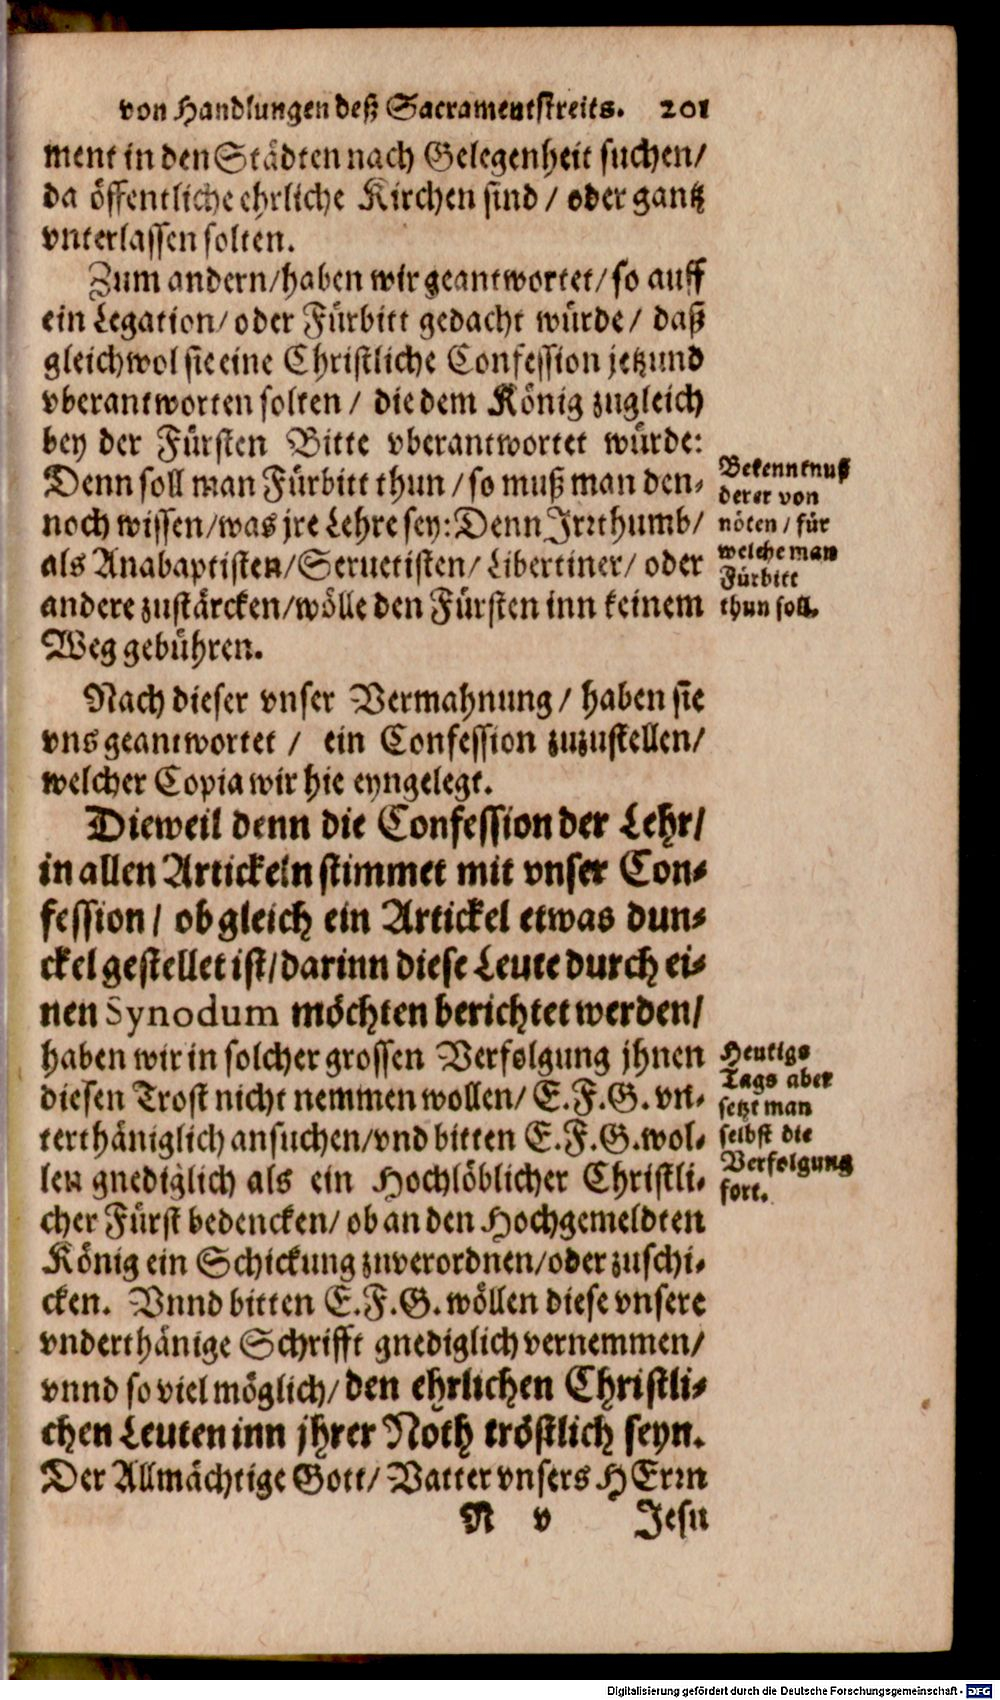 von Handlungen deß Sacramentstreits. 201
ment in den Städten nach Gelegenheit suchen/
da öffentliche ehrliche Kirchen sind / oder gantz
vnterlassen solten.
Zum andern/haben wir geantwortet/ so auff
ein Legation/ oder Fürbitt gedacht würde/ daß
gleichwol sie eine Christliche Confession jetzund
vberantworten solten / die dem König zugleich
bey der Fürsten Bitte vberantwortet würde:
Denn soll man Fürbitt thun / so muß man den-
noch wissen/was jre Lehre sey: Denn Jrrthumb/
als Anabaptisten/Seruetisten/ Libertiner/ oder
andere zustärcken/wölle den Fürsten inn keinem
Weg gebühren.
Bekenntnuß
derer von
nöten / für
welche man
Fürbitt
thun soll.
Nach dieser vnser Vermahnung / haben sie
vns geantwortet / ein Confession zuzustellen/
welcher Copia wir hie eyngelegt.
Dieweil denn die Confession der Lehr/
in allen Artickeln stimmet mit vnser Con-
fession / ob gleich ein Artickel etwas dun-
ckel gestellet ist/darinn diese Leute durch ei-
nen Synodum möchten berichtet werden/
haben wir in solcher grossen Verfolgung jhnen
diesen Trost nicht nemmen wollen/ E. F. G. vn-
terthäniglich ansuchen/vnd bitten E. F. G. wol-
len gnediglich als ein Hochlöblicher Christli-
cher Fürst bedencken/ ob an den Hochgemeldten
König ein Schickung zuverordnen/oder zuschi-
cken. Vnnd bitten E. F. G. wöllen diese vnsere
vnderthänige Schrifft gnediglich vernemmen/
vnnd so viel möglich/ den ehrlichen Christli-
chen Leuten inn jhrer Noth tröstlich seyn.
Der Allmächtige Gott/ Vatter vnsers HErrn
Heutigs
Tags aber
setzt man
selbst die
Verfolgung
fort.
N v Jesu
Digitalisierung gefördert durch die Deutsche Forschungsgemeinschaft - DFG